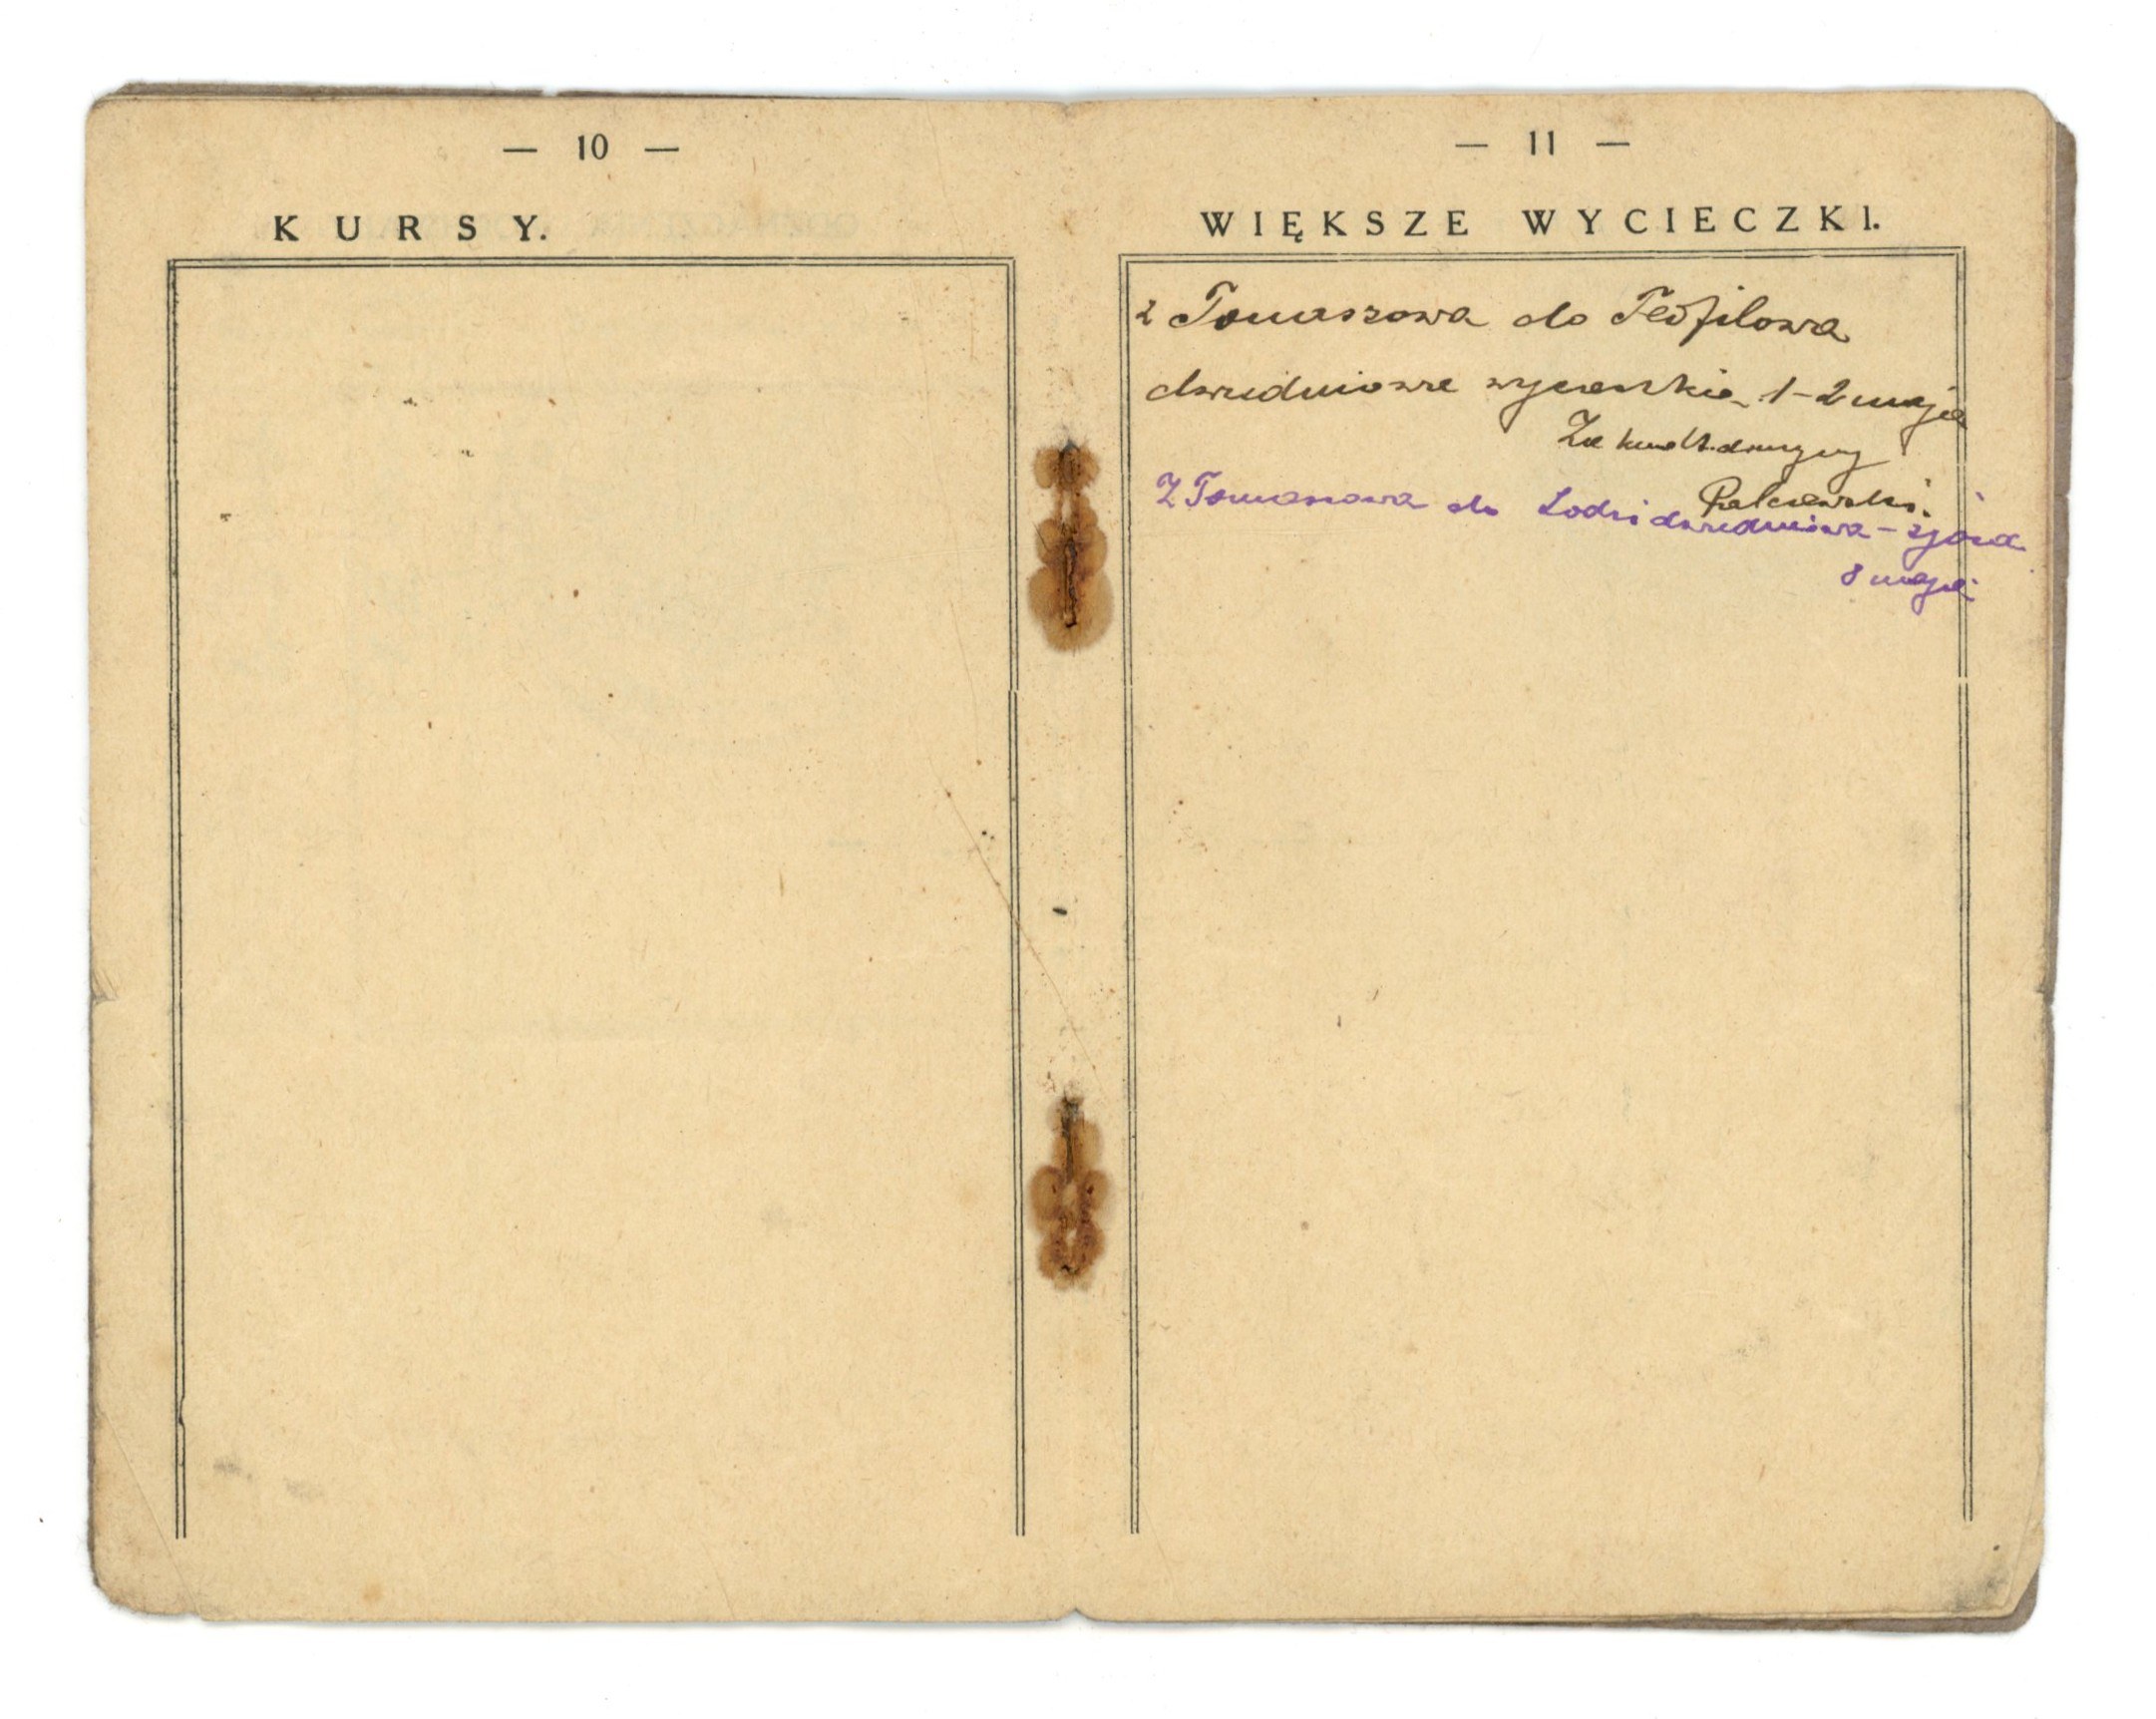 — 10 —
KURSY.
— 11 —
WIĘKSZE WYCIECZKI.
z Tomaszowa do Teofilowa
dwudniowe wycieczkie 1-2 maja
Za drużyny
Z Tomaszowa do Łodzi dwudniowa - zjazd
8 maja